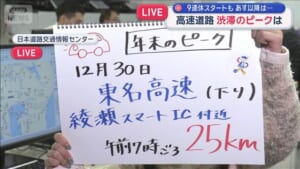 LIVE
9連休スタートも あす以降は…
高速道路 渋滞のピークは
日本道路交通情報センター
LIVE
年末のピーク
12月30日
東名高速(下り)
綾瀬スマートIC付近
午前7時ごろ 25km